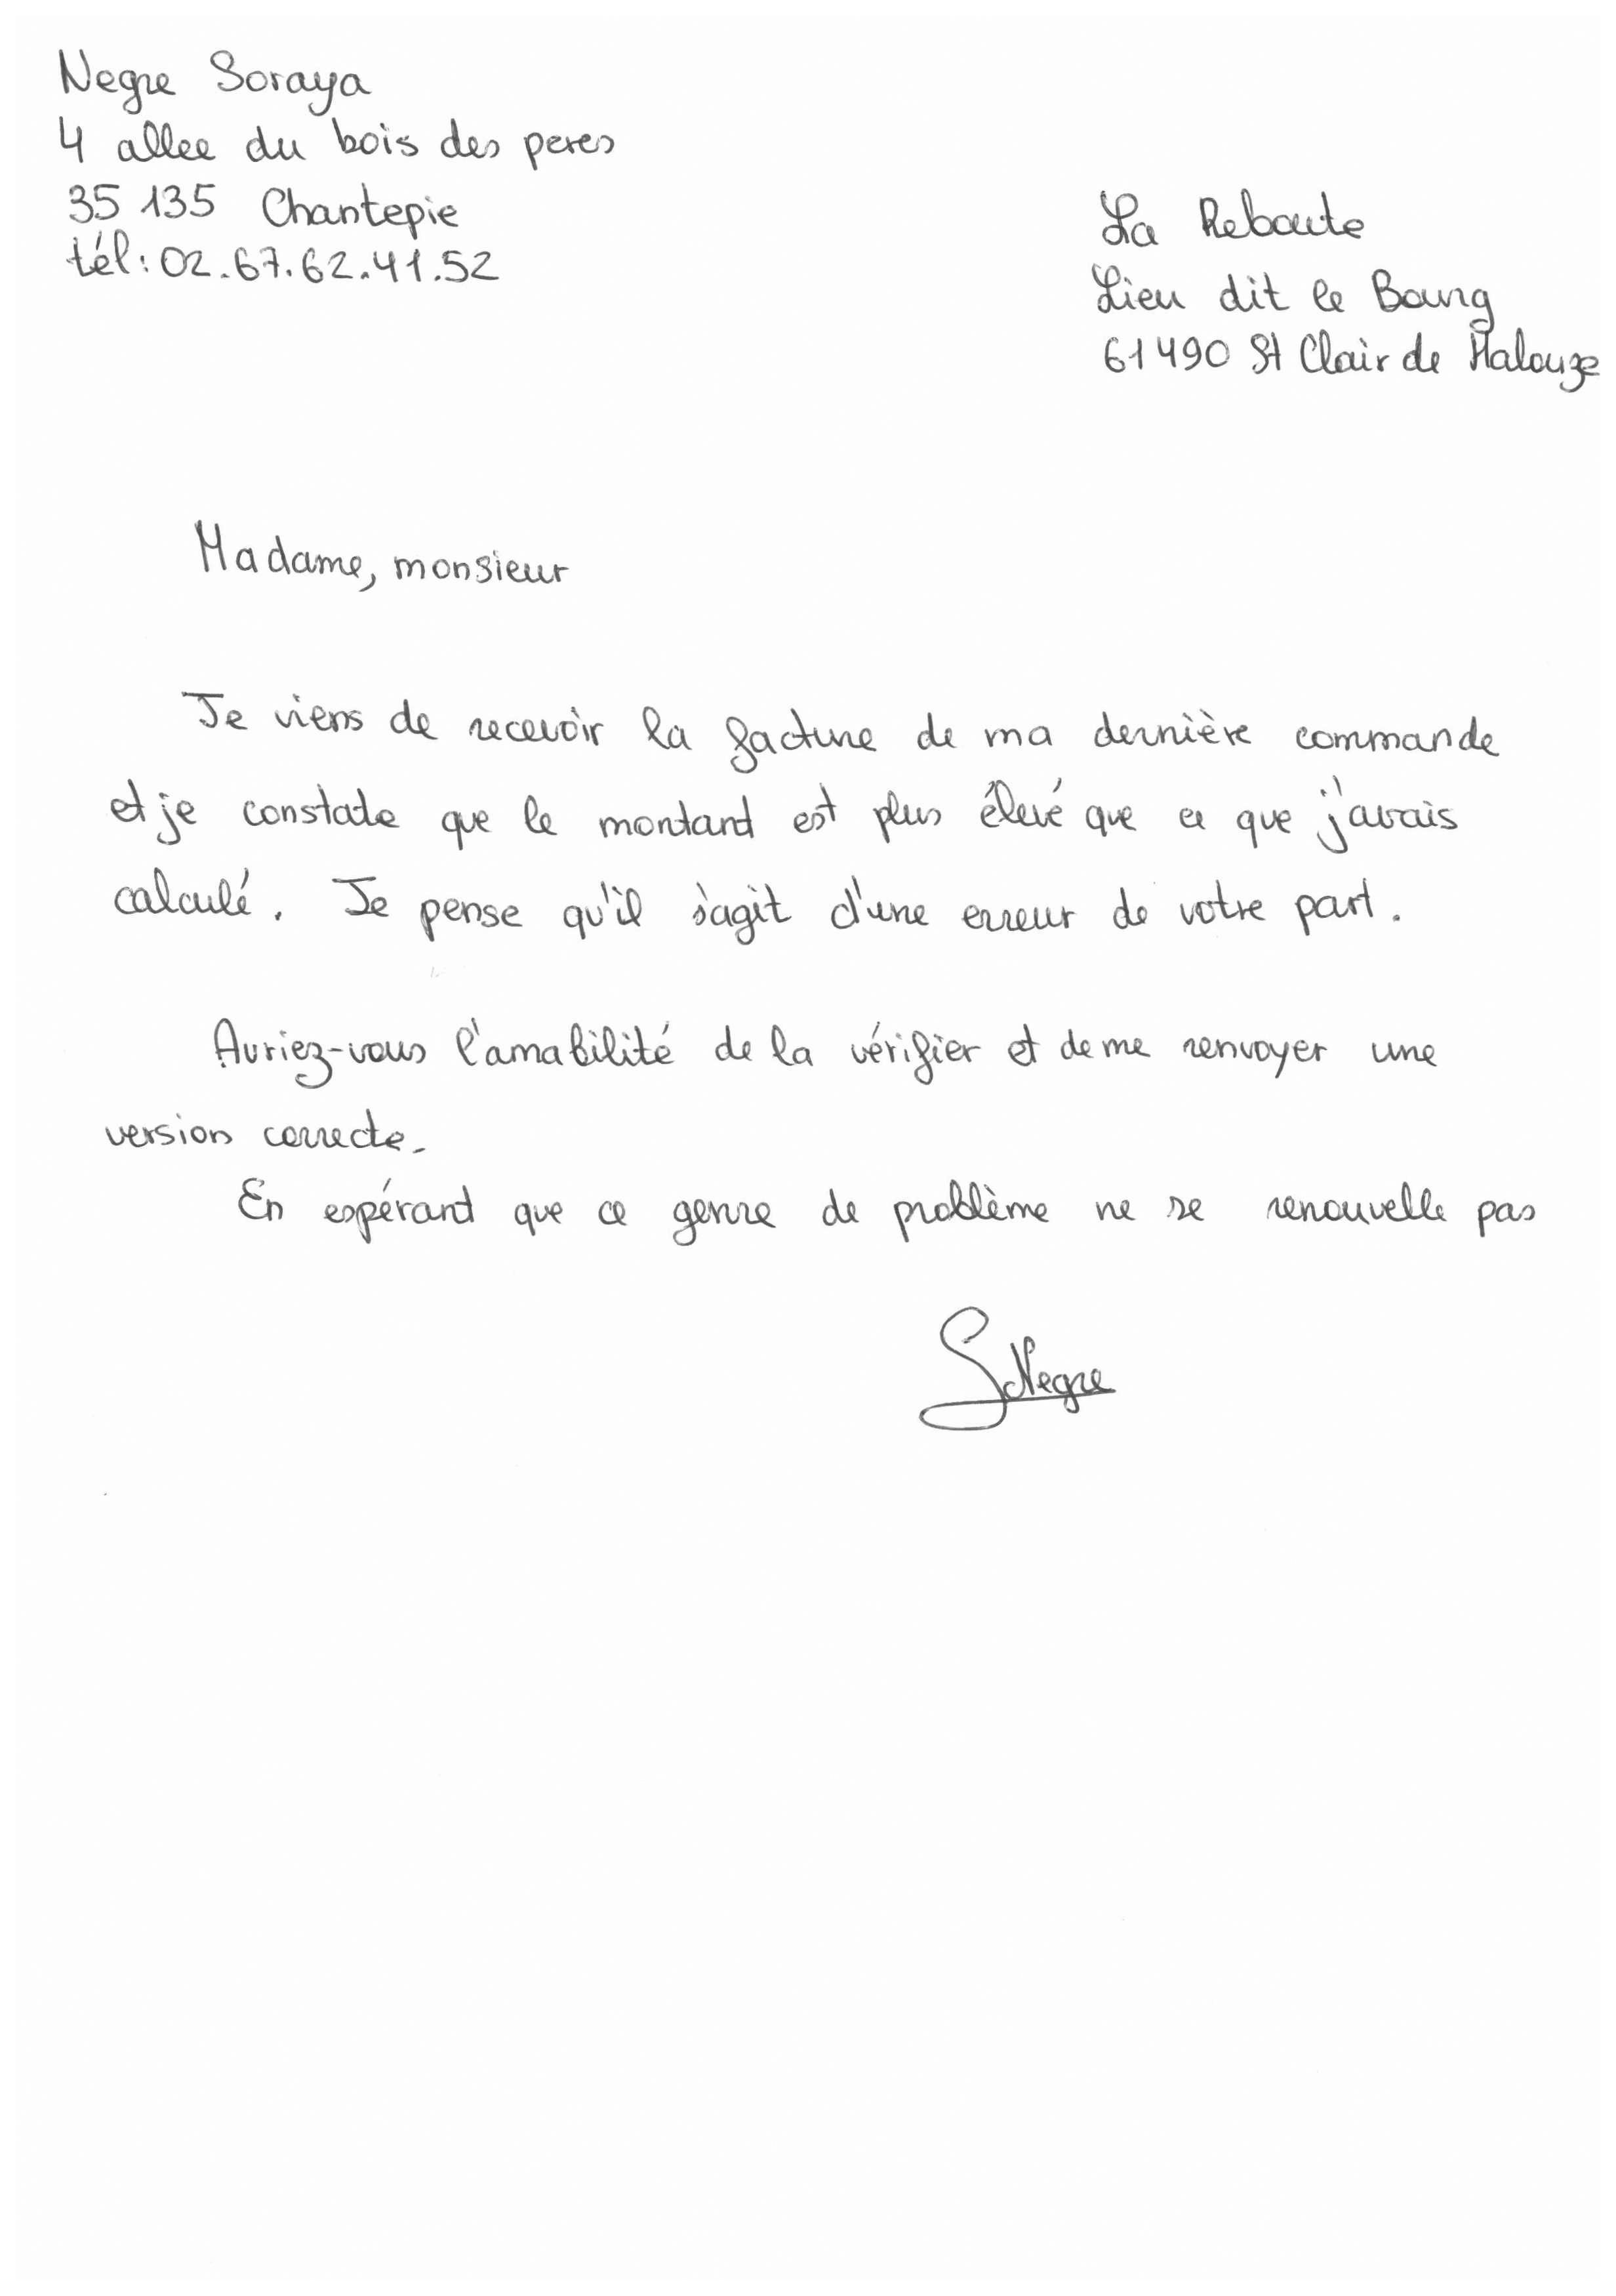 Negre Soraya
4 allee du bois des peres
35 135 Chantepie
tél : 02.67.62.41.52
La Reboute
Lieu dit le Bourg
61490 St Clair de Halouze
Madame, monsieur
Je viens de recevoir la facture de ma dernière commande
et je constate que le montant est plus élevé que ce que j'avais
calculé. Je pense qu'il s'agit d'une erreur de votre part.
Auriez-vous l'amabilité de la vérifier et de me renvoyer une
version correcte.
En espérant que ce genre de problème ne se renouvelle pas
SNegre